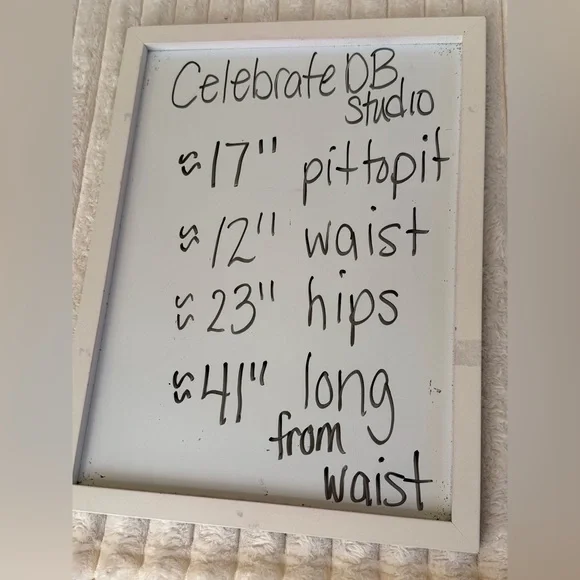 Celebrate DB
studio
≈17" pit to pit
≈12" waist
≈23" hips
≈41" long
from
waist